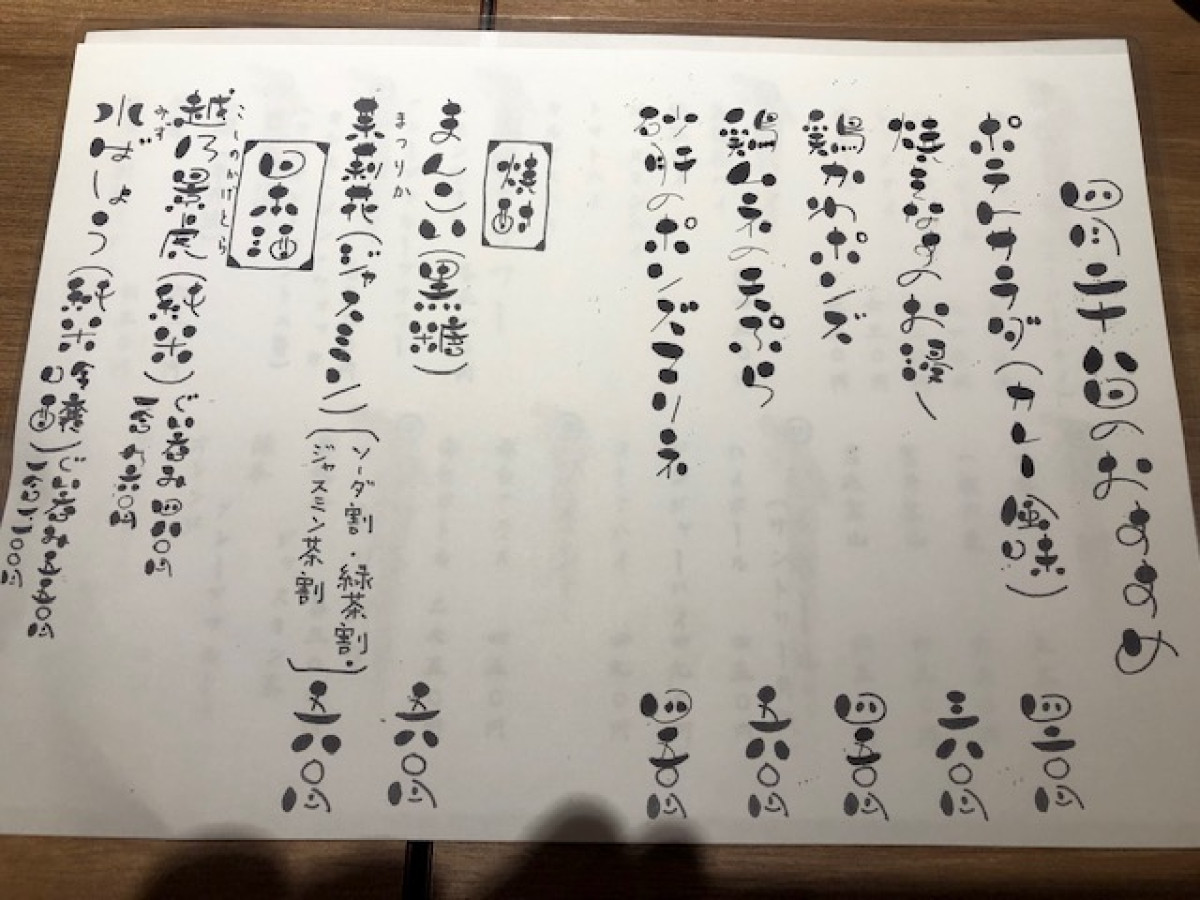 四月二十八日のおすすめ
ポテトサラダ(カレー風味) 四二〇円
焼きなすのお浸し 三八〇円
鶏かわポンズ 四五〇円
鶏ムネの天ぷら 五八〇円
砂肝のポンズマリネ 四五〇円
焼酎
まんこい(黒糖) 五八〇円
まつりか
茉莉花(ジャスミン)
(ソーダ割・緑茶割・
ジャスミン茶割) 五八〇円
日本酒
こしのかげとら
越乃景虎(純米) ぐい呑み 四八〇円
一合 九六〇円
みず
水ばしょう(純米吟醸) ぐい呑み 五五〇円
一合